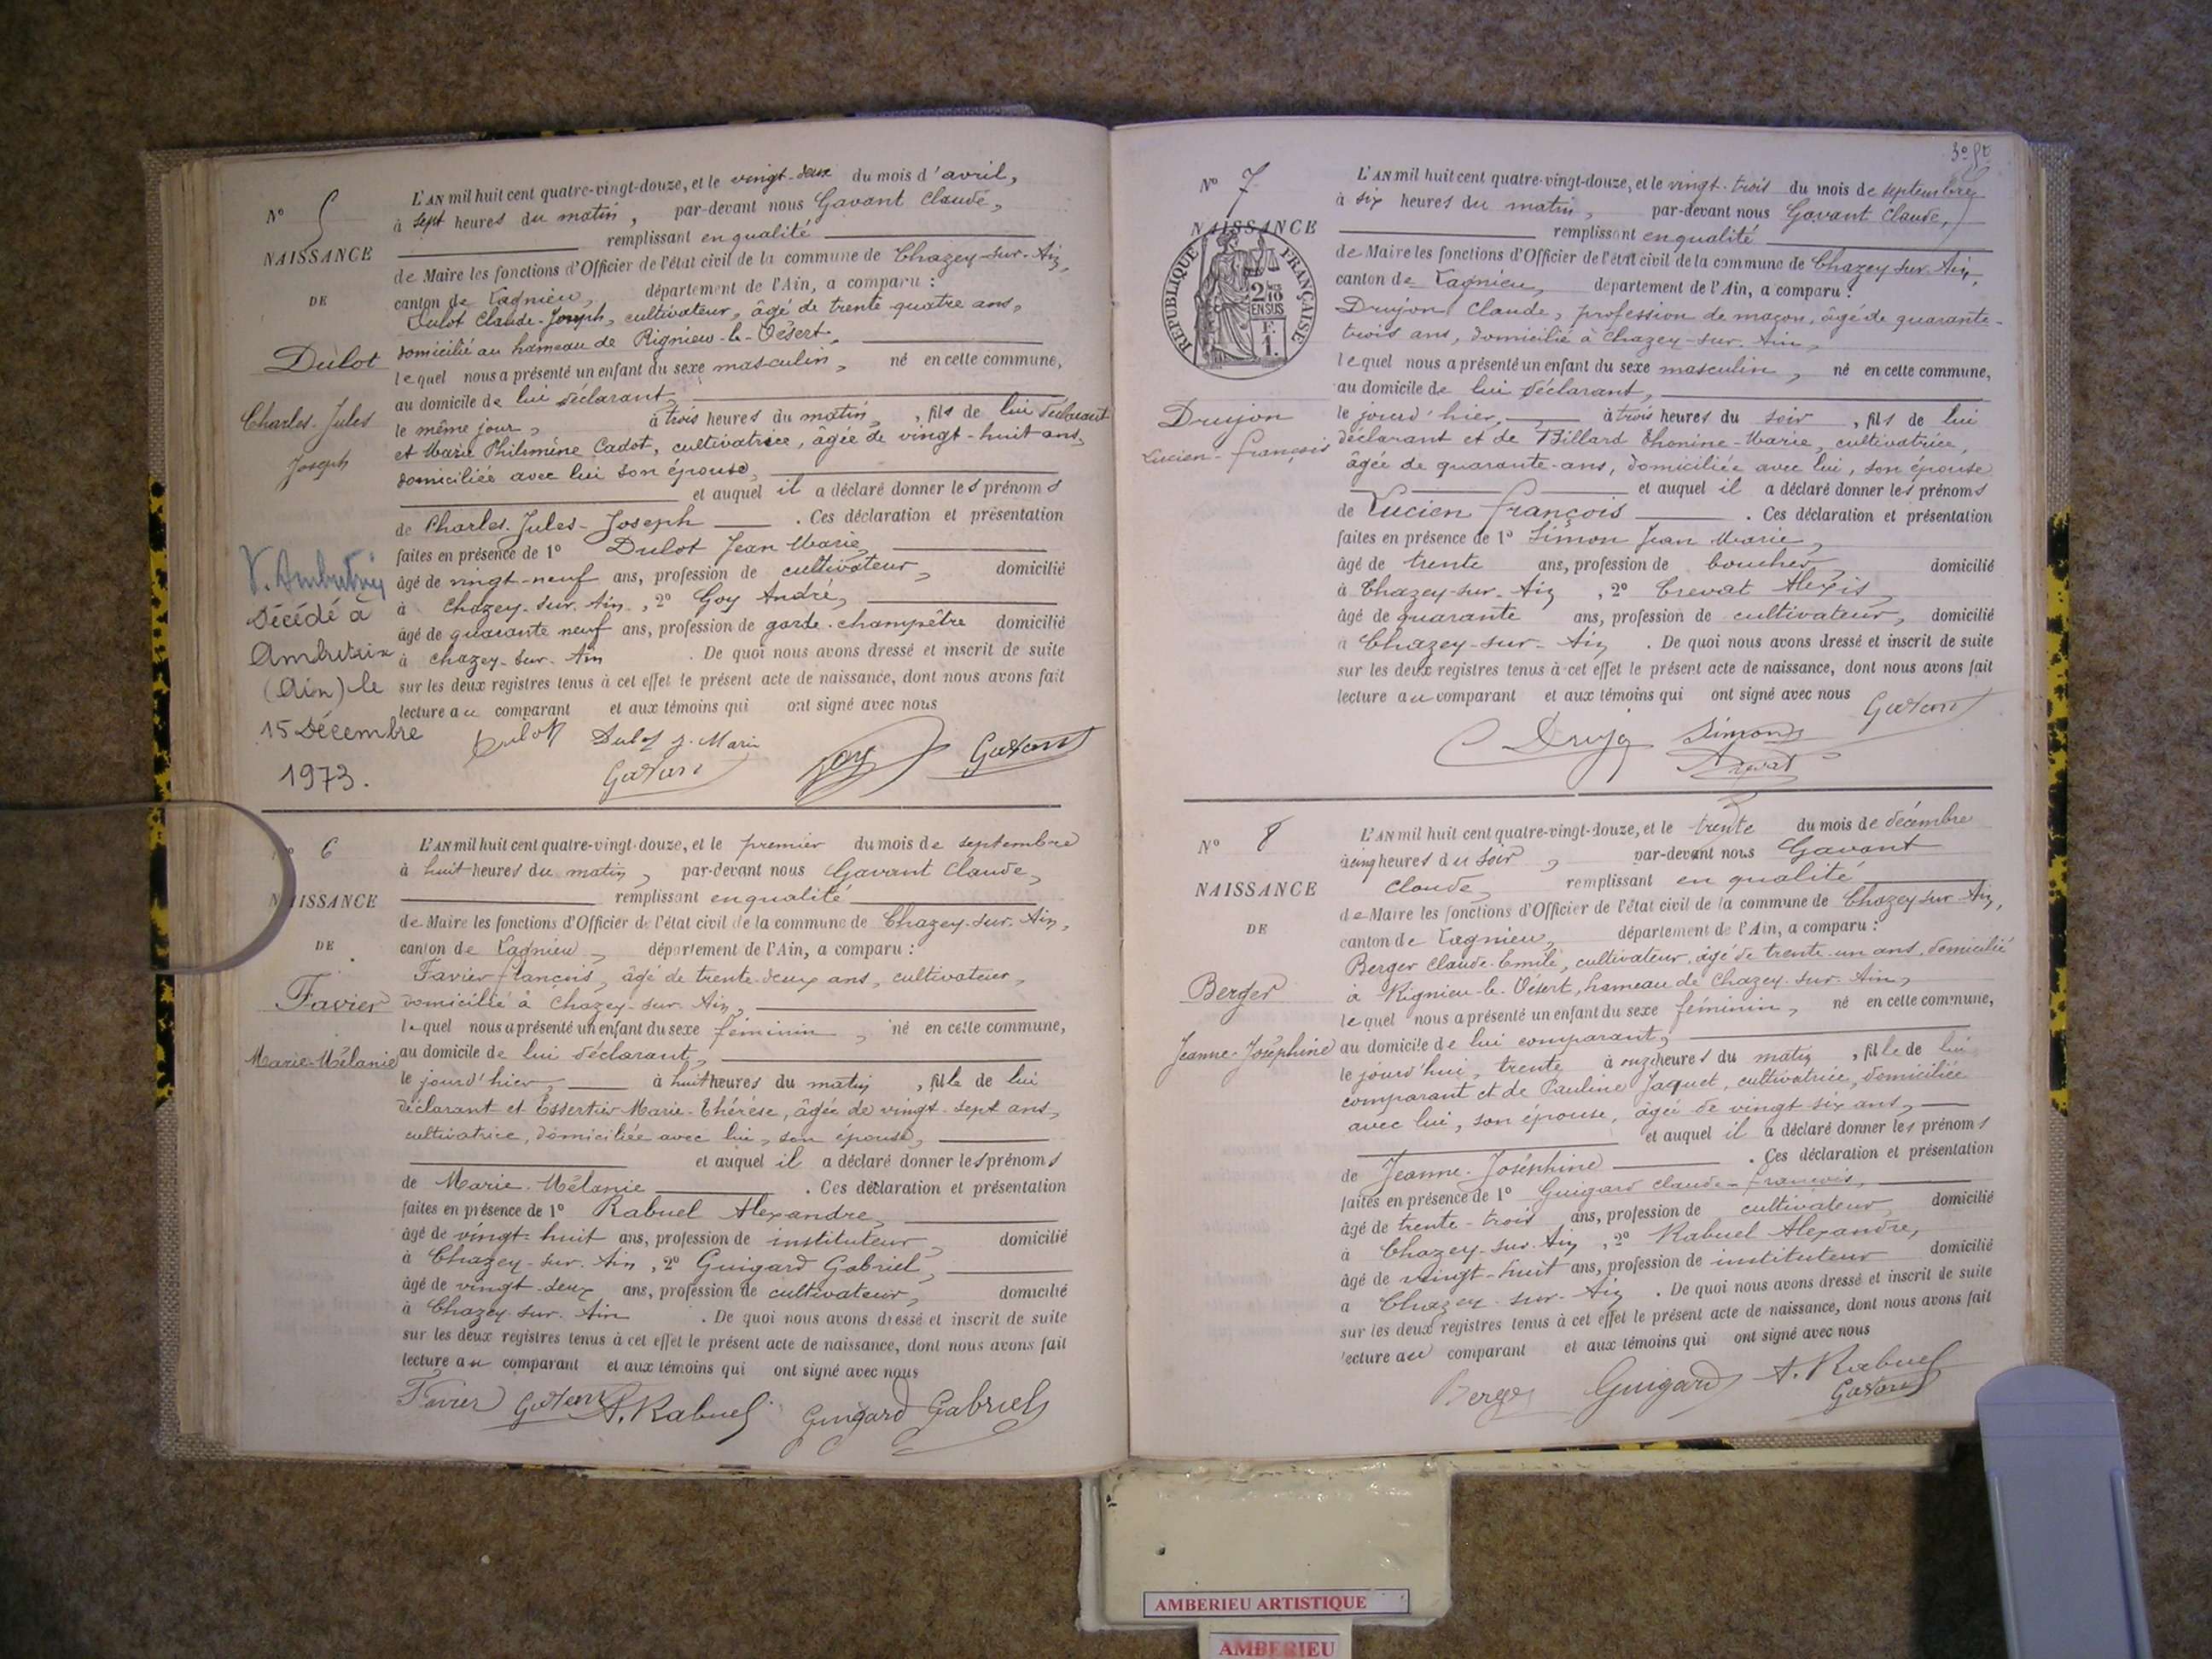 N° 5
NAISSANCE
DE
Dulot
Charles-Jules
Joseph
Décédé à
Ambutrix
(Ain) le
15 Décembre
1973.
L'AN mil huit cent quatre-vingt-douze, et le vingt-deux du mois d'avril,
à sept heures du matin, par-devant nous Gavant Claude,
remplissant en qualité
de Maire les fonctions d'Officier de l'état civil de la commune de Chazey-sur-Ain,
canton de Lagnieu, département de l'Ain, a comparu :
Dulot Claude-Joseph, cultivateur, âgé de trente-quatre ans,
domicilié au hameau de Rignieu-le-Désert,
lequel nous a présenté un enfant du sexe masculin, né en cette commune,
au domicile de lui déclarant,
le même jour, à trois heures du matin, , fils de lui déclarant
et Marie Philomène Cadot, cultivatrice, âgée de vingt-huit ans,
domiciliée avec lui son épouse,
et auquel il a déclaré donner les prénoms
de Charles-Jules-Joseph . Ces déclaration et présentation
faites en présence de 1° Dulot Jean Marie,
âgé de vingt-neuf ans, profession de cultivateur, domicilié
à Chazey-sur-Ain , 2° Goy André,
âgé de quarante neuf ans, profession de garde-champêtre domicilié
à Chazey-sur-Ain . De quoi nous avons dressé et inscrit de suite
sur les deux registres tenus à cet effet le présent acte de naissance, dont nous avons fait
lecture au comparant et aux témoins qui ont signé avec nous
Dulot Dulot J. Marie Goy Gavant
Gavant
N° 6
NAISSANCE
DE
Favier
Marie-Mélanie
L'AN mil huit cent quatre-vingt-douze, et le premier du mois de septembre
à huit heures du matin, par-devant nous Gavant Claude,
remplissant en qualité
de Maire les fonctions d'Officier de l'état civil de la commune de Chazey-sur-Ain,
canton de Lagnieu, département de l'Ain, a comparu :
Favier françois, âgé de trente-deux ans, cultivateur,
domicilié à Chazey-sur-Ain,
lequel nous a présenté un enfant du sexe féminin, né en cette commune,
au domicile de lui déclarant,
le jourd'hier, à huit heures du matin , fille de lui
déclarant et Essertier Marie-Thérèse, âgée de vingt-sept ans,
cultivatrice, domiciliée avec lui, son épouse,
et auquel il a déclaré donner les prénoms
de Marie-Mélanie . Ces déclaration et présentation
faites en présence de 1° Rabuel Alexandre,
âgé de vingt-huit ans, profession de instituteur, domicilié
à Chazey-sur-Ain , 2° Guigard Gabriel,
âgé de vingt-deux ans, profession de cultivateur, domicilié
à Chazey-sur-Ain . De quoi nous avons dressé et inscrit de suite
sur les deux registres tenus à cet effet le présent acte de naissance, dont nous avons fait
lecture au comparant et aux témoins qui ont signé avec nous
Favier Gavant A. Rabuel Guigard Gabriel
N° 7
NAISSANCE
RÉPUBLIQUE FRANÇAISE
2/10 EN SUS
F. 1.
Drujon
Lucien-françois
L'AN mil huit cent quatre-vingt-douze, et le vingt-trois du mois de septembre,
à six heures du matin, par-devant nous Gavant Claude,
remplissant en qualité
de Maire les fonctions d'Officier de l'état civil de la commune de Chazey-sur-Ain,
canton de Lagnieu, département de l'Ain, a comparu :
Drujon Claude, profession de maçon, âgé de quarante-
trois ans, domicilié à Chazey-sur-Ain,
lequel nous a présenté un enfant du sexe masculin, né en cette commune,
au domicile de lui déclarant,
le jourd'hier, à trois heures du soir , fils de lui
déclarant et de Billard Thonine-Marie, cultivatrice,
âgée de quarante-ans, domiciliée avec lui, son épouse
et auquel il a déclaré donner les prénoms
de Lucien françois . Ces déclaration et présentation
faites en présence de 1° Simon Jean Marie,
âgé de trente ans, profession de boucher, domicilié
à Chazey-sur-Ain , 2° Crevat Alexis,
âgé de quarante ans, profession de cultivateur, domicilié
à Chazey-sur-Ain . De quoi nous avons dressé et inscrit de suite
sur les deux registres tenus à cet effet le présent acte de naissance, dont nous avons fait
lecture au comparant et aux témoins qui ont signé avec nous Gavant
C Drujon Simon
Crevat
N° 8
NAISSANCE
DE
Berger
Jeanne-Joséphine
L'AN mil huit cent quatre-vingt-douze, et le trente du mois de décembre
à cinq heures du soir, par-devant nous Gavant
Claude, remplissant en qualité
de Maire les fonctions d'Officier de l'état civil de la commune de Chazey-sur-Ain,
canton de Lagnieu, département de l'Ain, a comparu :
Berger Claude-Emile, cultivateur, âgé de trente-un ans, domicilié
à Rignieu-le-Désert, hameau de Chazey-sur-Ain,
lequel nous a présenté un enfant du sexe féminin, né en cette commune,
au domicile de lui comparant,
le jourd'hui, trente à onze heures du matin , fille de lui
comparant et de Pauline Jaquet, cultivatrice, domiciliée
avec lui, son épouse, âgée de vingt-six ans,
et auquel il a déclaré donner les prénoms
de Jeanne-Joséphine . Ces déclaration et présentation
faites en présence de 1° Guigard Claude-françois,
âgé de trente-trois ans, profession de cultivateur, domicilié
à Chazey-sur-Ain , 2° Rabuel Alexandre,
âgé de vingt-huit ans, profession de instituteur domicilié
à Chazey-sur-Ain . De quoi nous avons dressé et inscrit de suite
sur les deux registres tenus à cet effet le présent acte de naissance, dont nous avons fait
lecture au comparant et aux témoins qui ont signé avec nous
Berger Guigard A. Rabuel
Gavant
AMBERIEU ARTISTIQUE
AMBERIEU